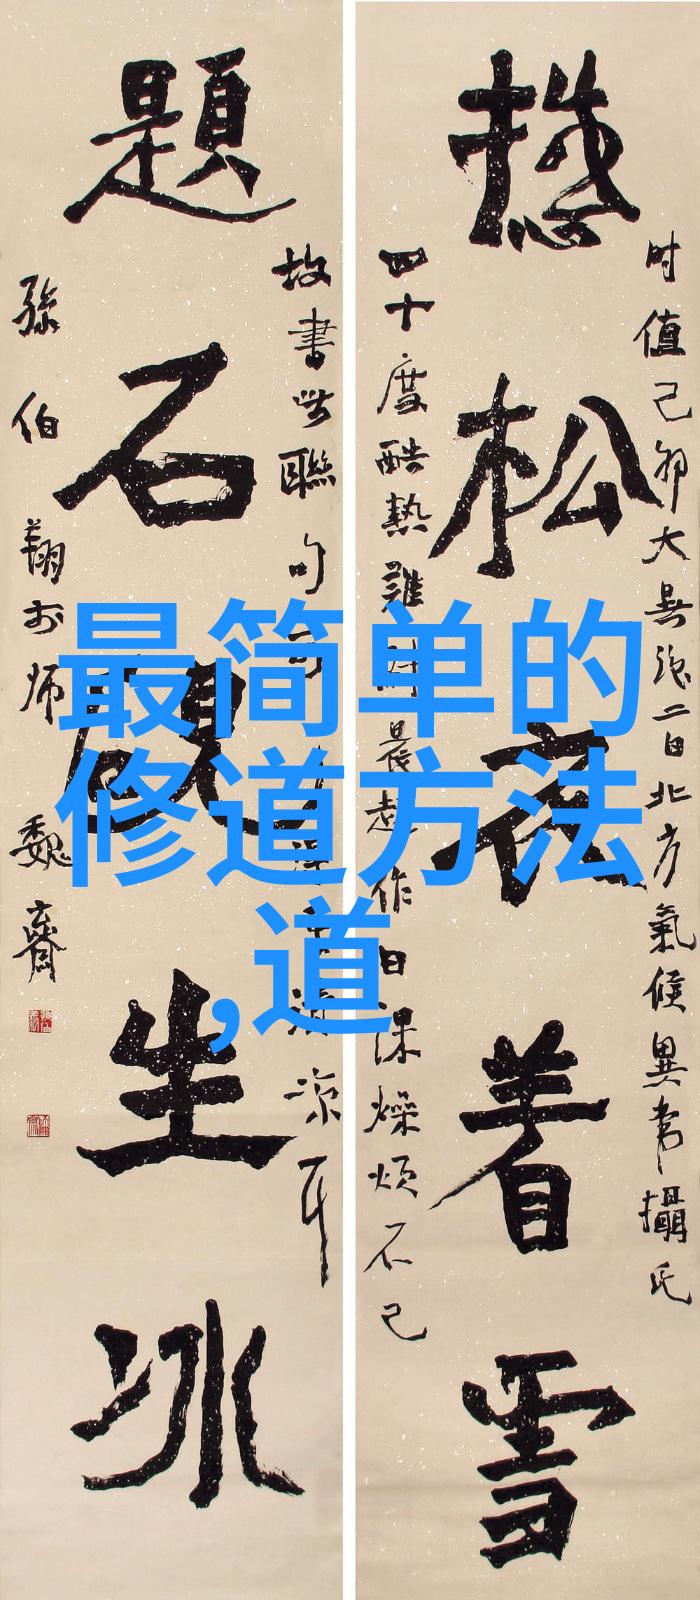 时值己卯大暑後二日北方氣候異常攝氏
松着雪
四十度酷熱難耐晨起作日課燥煩不已
故書此聯句凉耳
題石硯生冰
孫伯翔於师魏齋
最简单的
修道方法
,道